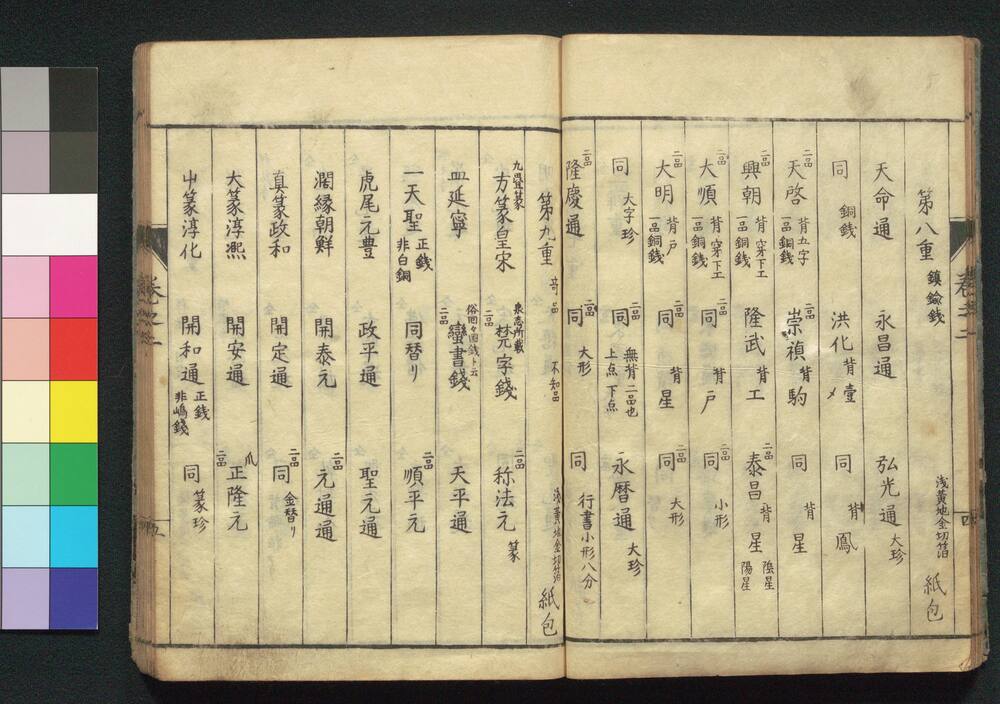 第八重 鎮鍮銭 浅黄地金切箔 紙包
天命通 永昌通 弘光通 大珍
同 銅銭 洪化 背壹 〆 同 背鳳
天啓 二品 背五字 一品銅銭 崇禎 二品 背駒 同 背星
興朝 二品 背穿下工 一品銅銭 隆武 二品 背工 泰昌 二品 背星 陰星 陽星
大順 二品 背穿下工 一品銅銭 同 二品 背戸 同 二品 小形
大明 二品 背戸 一品銅銭 同 二品 背星 同 二品 大形
同 大字珍 同 二品 無背二品也 上点下点 永暦通 大珍
隆慶通 二品 同 二品 大形 同 行書小形八分
第九重 奇品 不知品 浅黄地金切箔 紙包
九畳篆 方篆皇宋 泉志所載 梵字銭 二品 称法元 二品 篆
皿延寧 俗回々国銭ト云 蠻書銭 天平通
一天聖 正銭 非白銅 同替リ 二品 順平元 二品
虎尾元豊 政平通 聖元通
濶縁朝鮮 開泰元 元通通 二品
真篆政和 開定通 同 二品 金替リ
大篆淳熙 開安通 正隆元 二品 爪
篆淳化 開和通 正銭 非嶋銭 同 篆珍
卷之二
四
卷之二